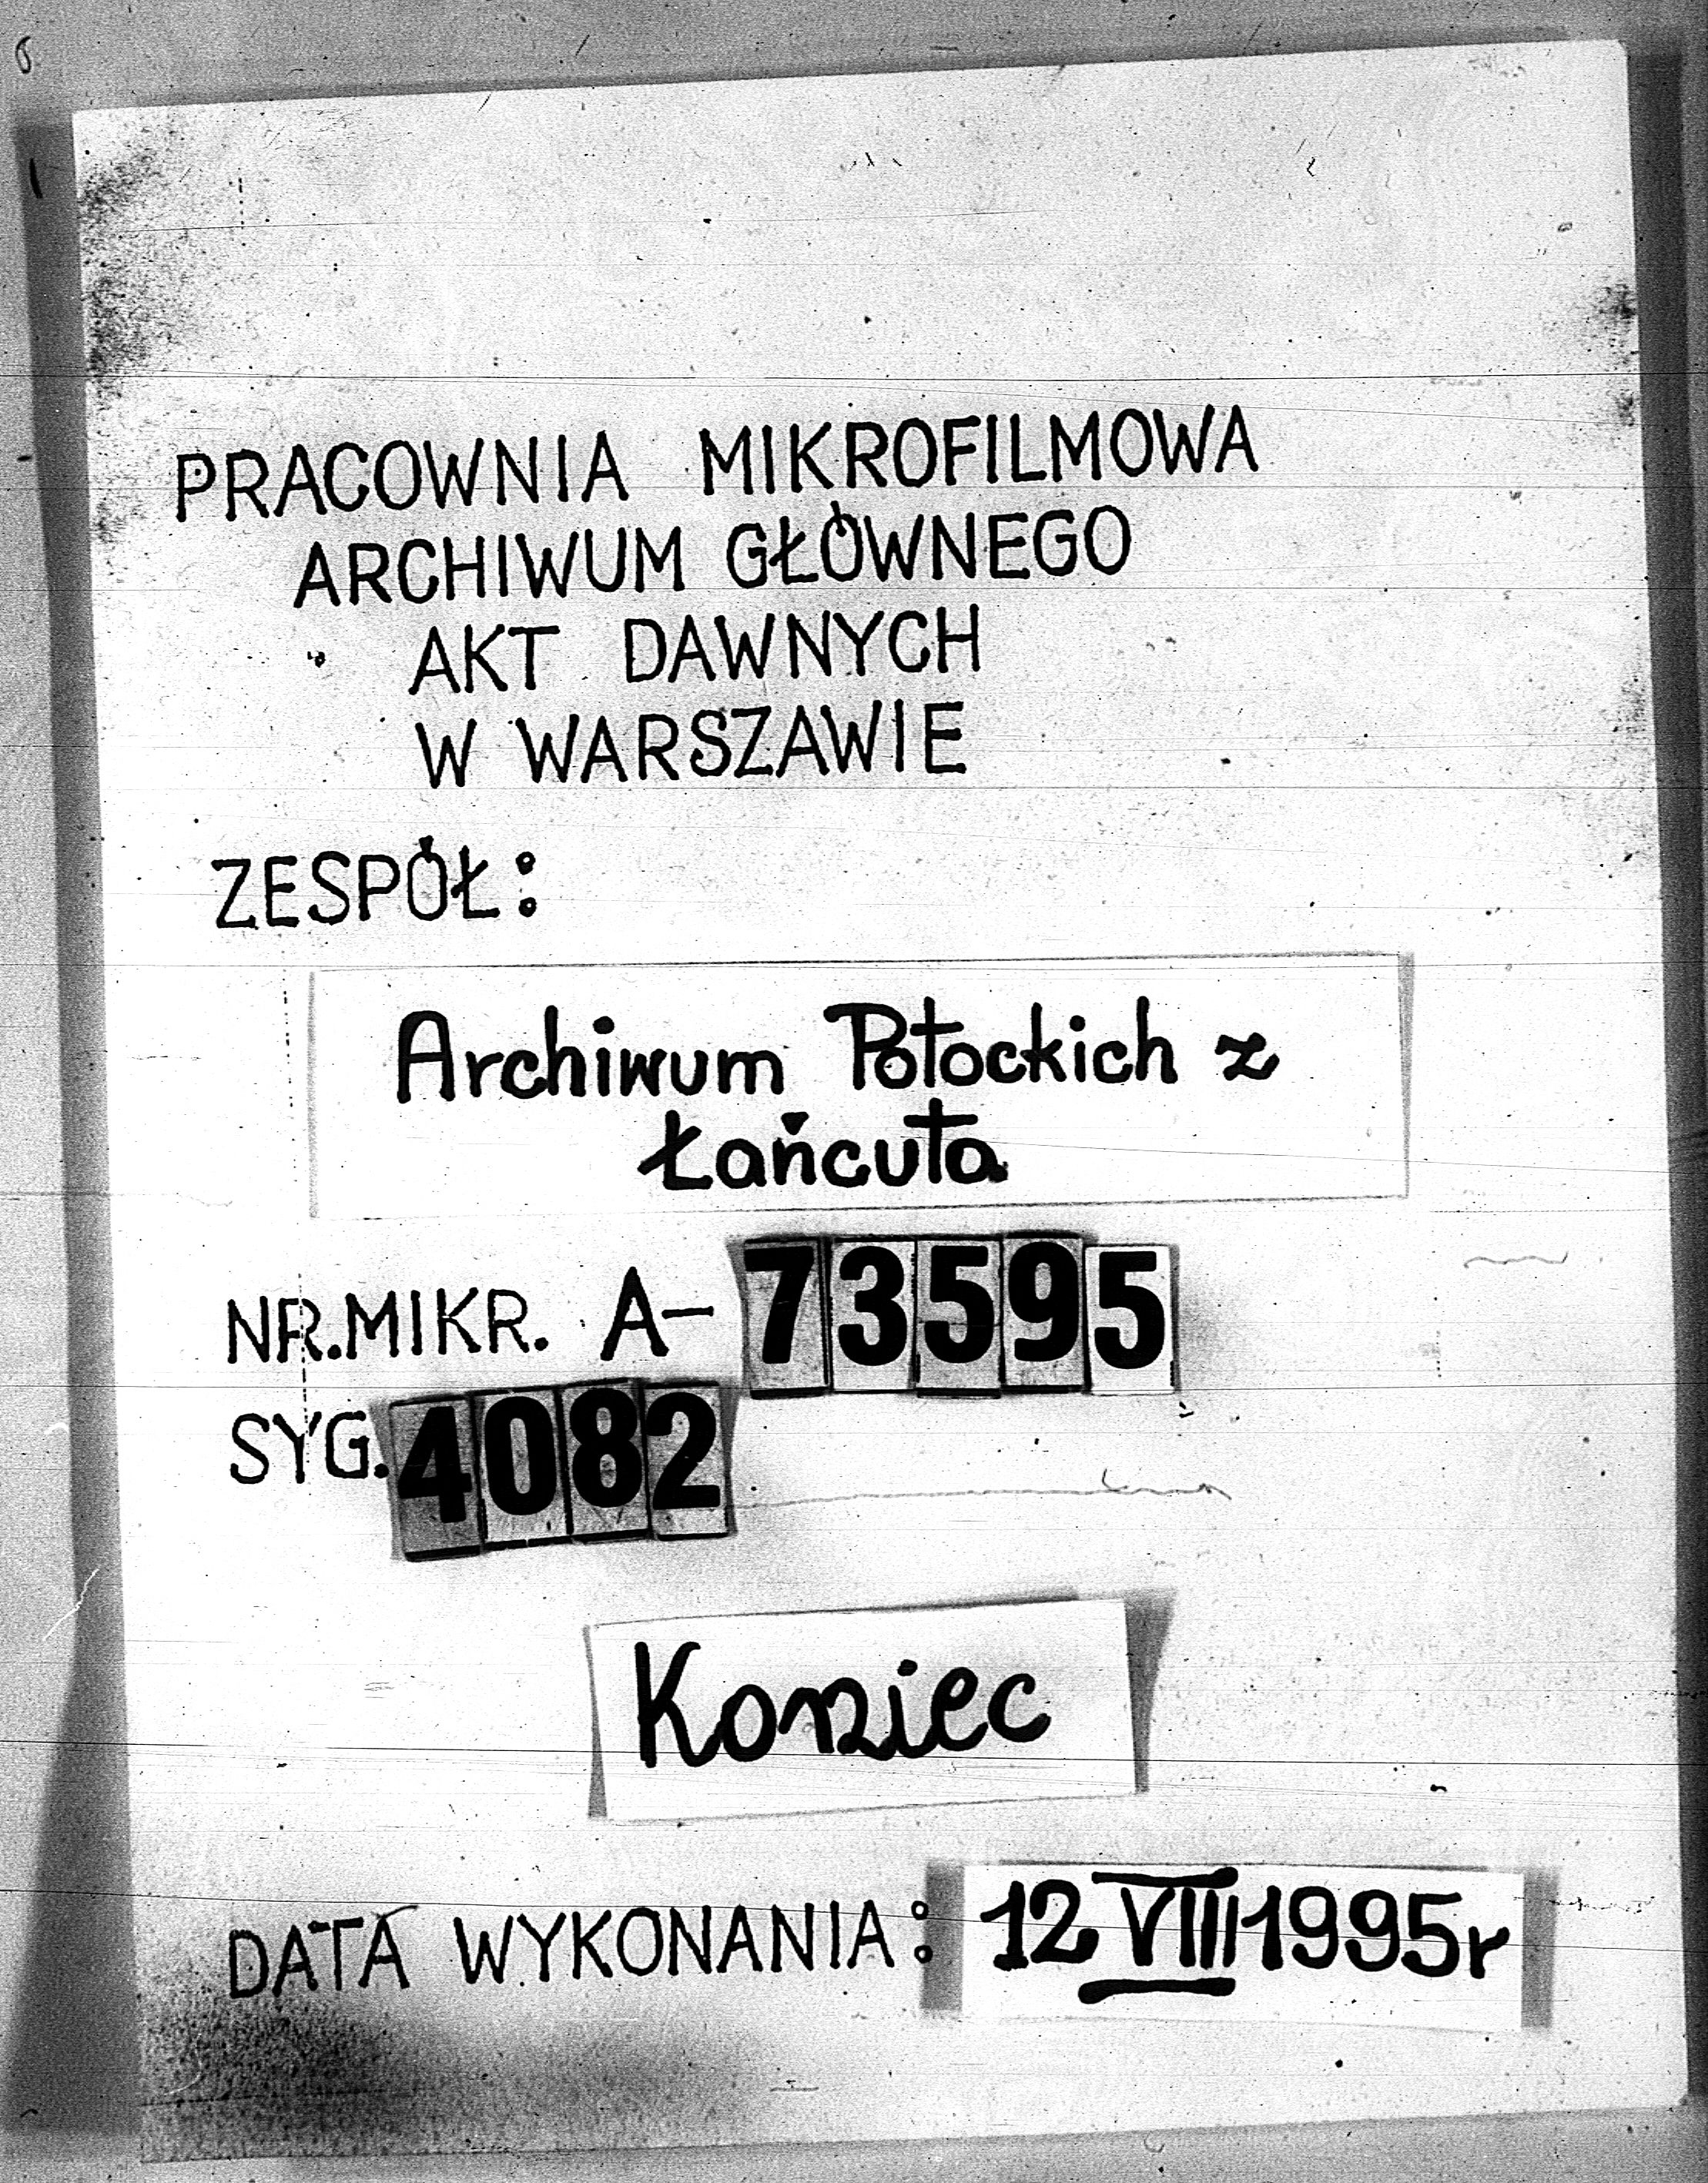 PRACOWNIA MIKROFILMOWA
ARCHIWUM GŁÓWNEGO
AKT DAWNYCH
W WARSZAWIE
ZESPÓŁ:
Archiwum Potockich z
Łańcuta
NR.MIKR. A- 73595
SYG. 4082
Koniec
DATA WYKONANIA: 12 VIII 1995r